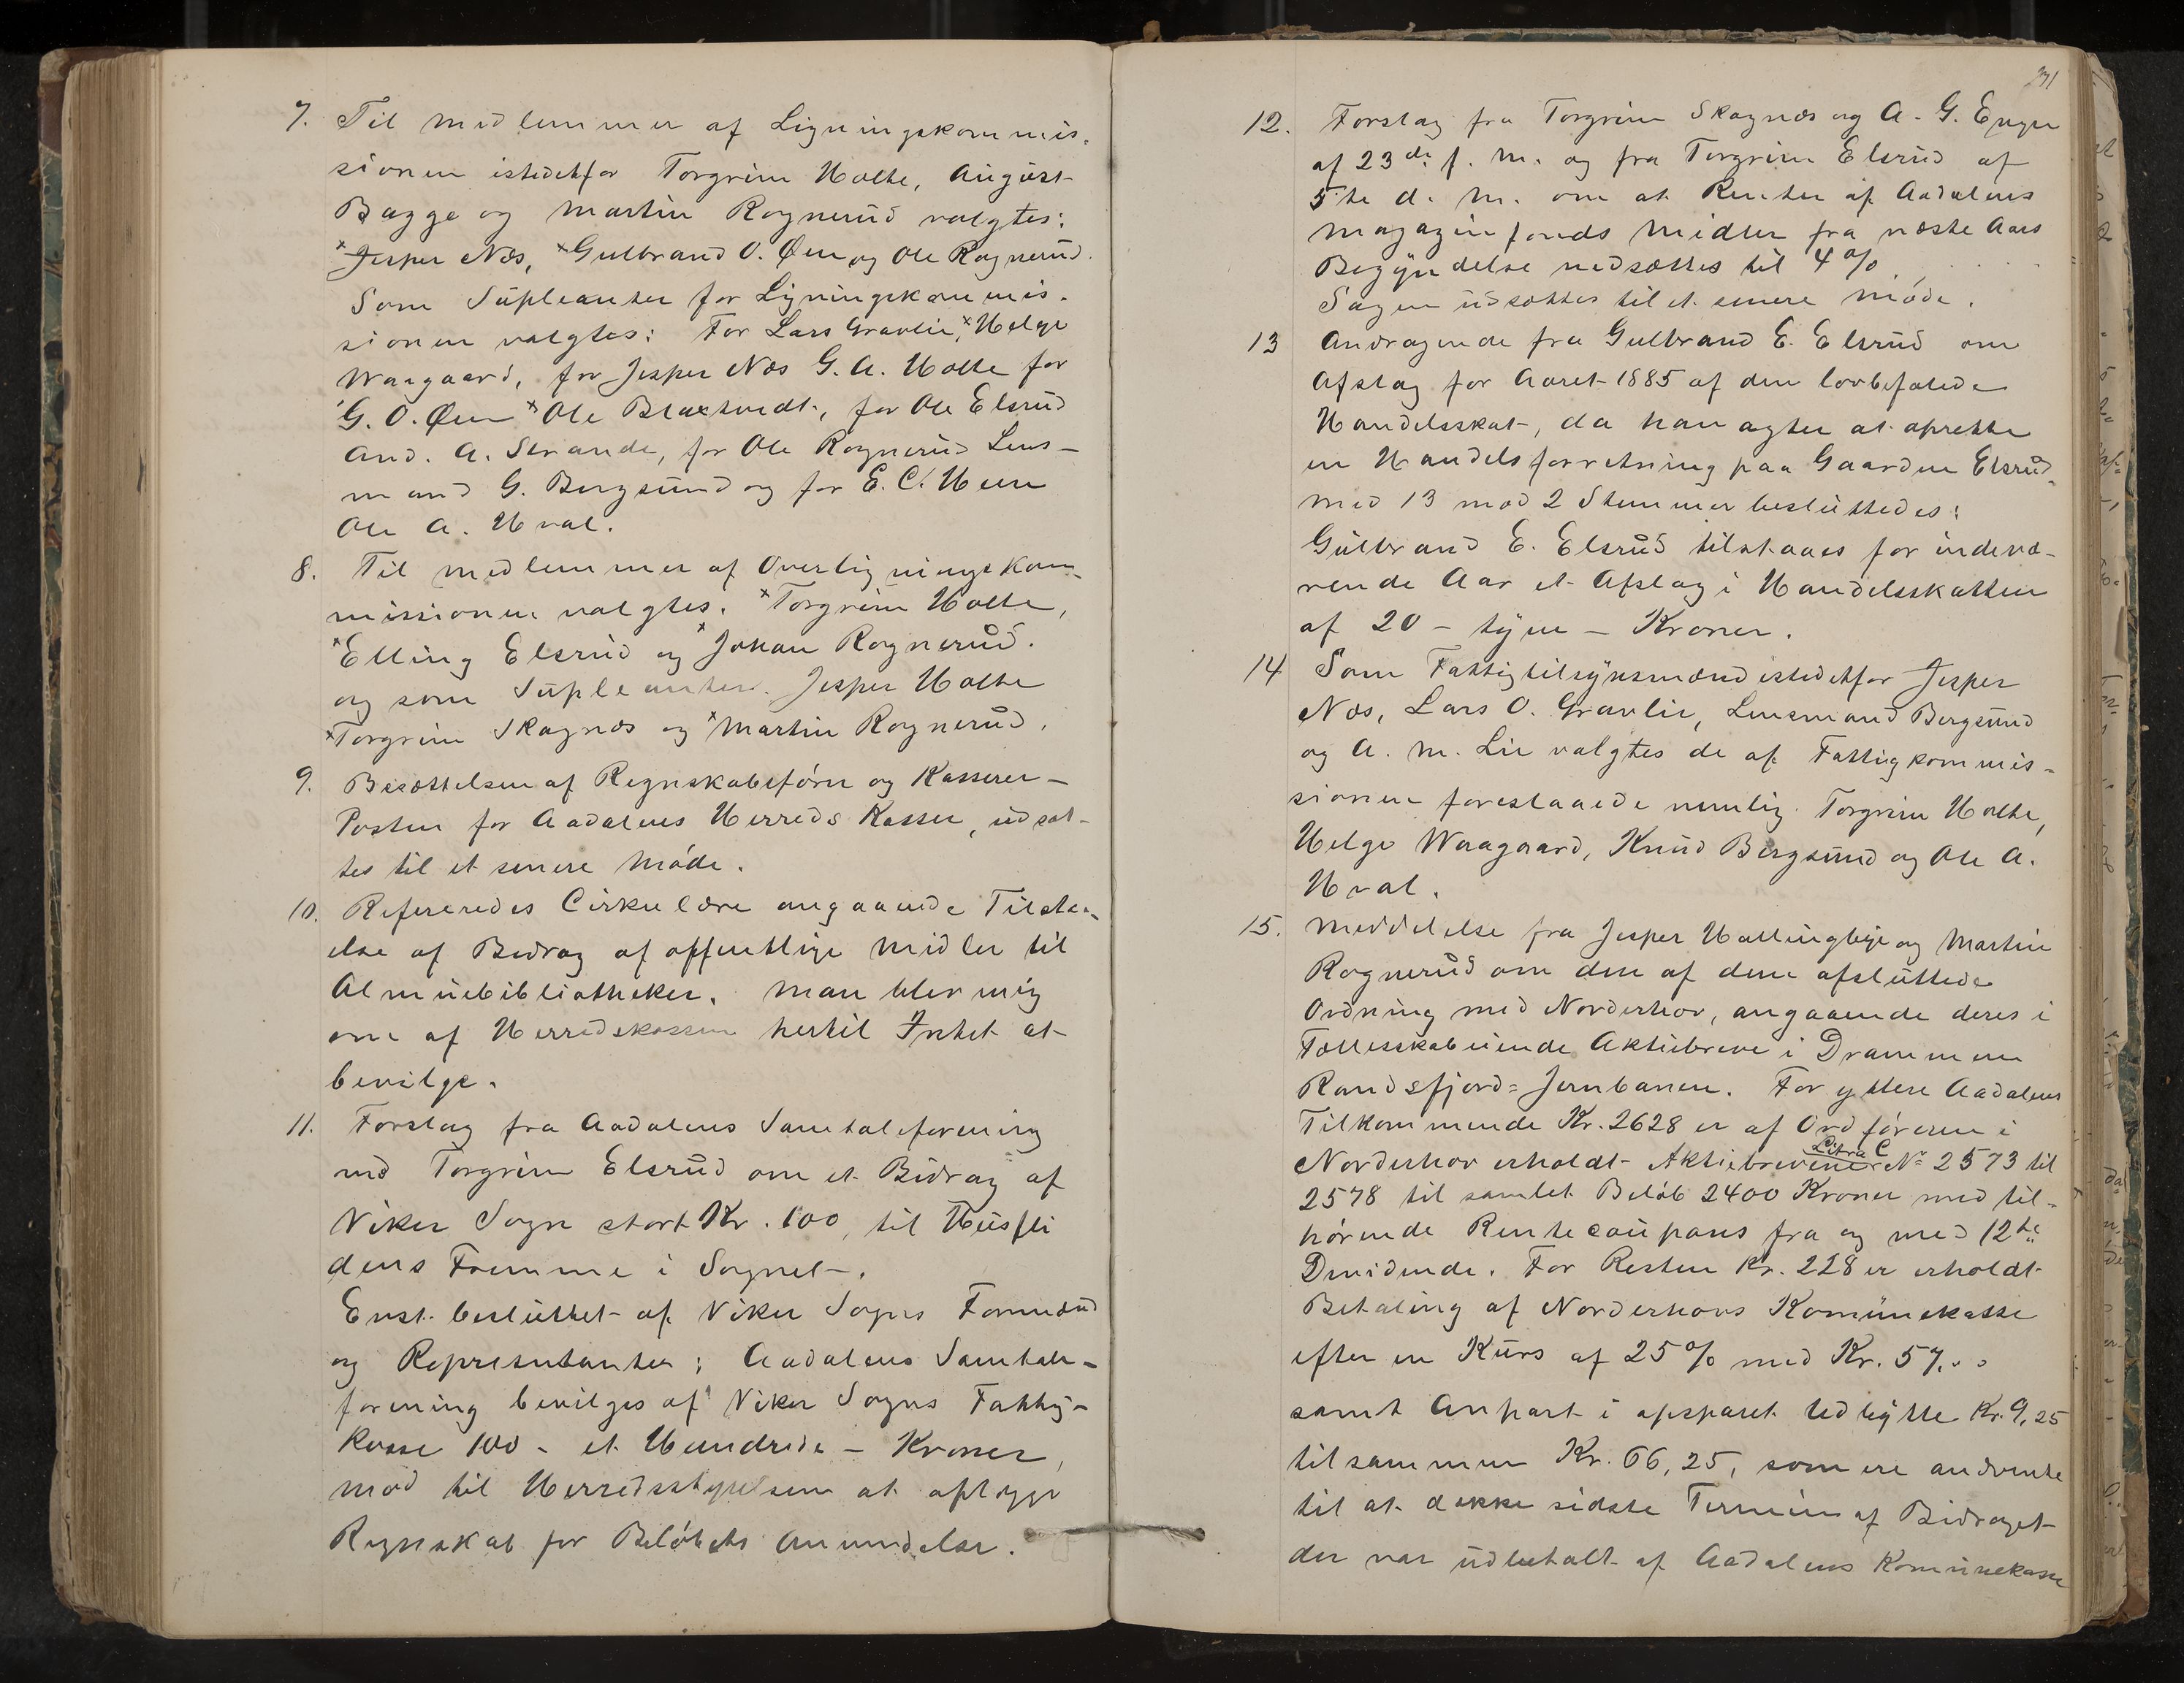 7. Til medlemmer af Ligningskommis-
sionen istedetfor Torgrim Holte, August
Bagge og Martin Rognerud valgtes:
×Jesper Næs, ×Gulbrand O. Øen og Ole Rognerud.
Som Supleanter for Ligningskommis-
sionen valgtes: For Lars Gravlie, ×Helge
Waagaard, for Jesper Næs G. A. Holte for
G. O. Øen ×Ole Blaxtvedt, for Ole Elsrud
And. A. Strande, for Ole Rognerud Lens-
mand G. Bergsund og for E. C. Heen
Ole A. Hval.
8. Til medlemmer af Overligningskom-
missionen valgtes: ×Torgrim Holte,
×Elling Elsrud og ×Johan Rognerud.
og som Supleanter. Jesper Holte
×Torgrim Skagnæs og ×Martin Rognerud.
9. Besættelsen af Regnskabsfører og Kasserer-
Posten for Aadalens Herreds Kasser, udsat-
tes til et senere Møde.
10. Refereredes Cirkulære angaaende Tilstaa-
else af Bidrag af offentlige Midler til
Almuebibliotheker. Man blev enig
om af Herredskassen hertil Intet at
bevilge.
11. Forslag fra Aadalens Samtaleforening
ved Torgrim Elsrud om et Bidrag af
Viker Sogn stort Kr. 100, til Husfli
dens Fremme i Sognet.
Enst. besluttet af Viker Sogns Formænd
og Repræsentanter: Aadalens Samtale-
forening bevilges af Viker Sogns Fattig-
kasse 100 - et Hundrede - Kroner,
mod til Herredsstyrelsen at aflegge
Regnskab for Beløbets Anvendelse.
12. Forslag fra Torgrim Skagnæs og A. G. Enger
af 23de f. M. og fra Torgrim Elsrud af
5te d. M. om at Renten af Aadalens
Magazinfonds Midler fra næste Aars
Begyndelse nedsættes til 4%.
Sagen udsættes til et senere Møde.
13 Andragende fra Gulbrand E. Elsrud om
Afslag for Aaret 1885 af den lovbefalede
Handelsskat, da han agter at oprette
en Handelsforretning paa Gaarden Elsrud.
Med 13 mod 2 Stemmer besluttedes:
Gulbrand E. Elsrud tilstaaes for indevæ-
rende Aar et Afslag i Handelsskatten
af 20 - tyve - Kroner.
14 Som Fattigtilsynsmænd istedetfor Jesper
Næs, Lars O. Gravlie, Lensmand Bergsund
og A. M. Lie valgtes de af Fattigkommis-
sionen foreslaaede nemlig. Torgrim Holte,
Helge Waagaard, Knud Bergsund og Ole A.
Hval.
15. Meddelelse fra Jesper Hallingbye og Martin
Rognerud om den af dem afsluttede
Ordning med Norderhov, angaaende deres i
Fællesskab eiende Aktiebreve i Drammen
Randsfjord-Jernbanen. For yttere Aadalens
Tilkommende Kr. 2628 er af Ordføreren i
Litra C
Norderhov erholdt Aktiebrevene No 2573 til
2578 til samlet Beløb 2400 Kroner med til-
hørende Rentecoupons fra og med 12te
Dividende. For Resten Kr. 228 er erholdt
Betaling af Norderhovs Komunekasse
efter en Kurs af 25% med Kr. 57,..
samt Anpart i opsparet Udbytte Kr. 9,25
tilsammen Kr. 66,25, som ere anvendte
til at dække sidste Termin af Bidraget
der var udbetalt af Aadalens Komunekasse